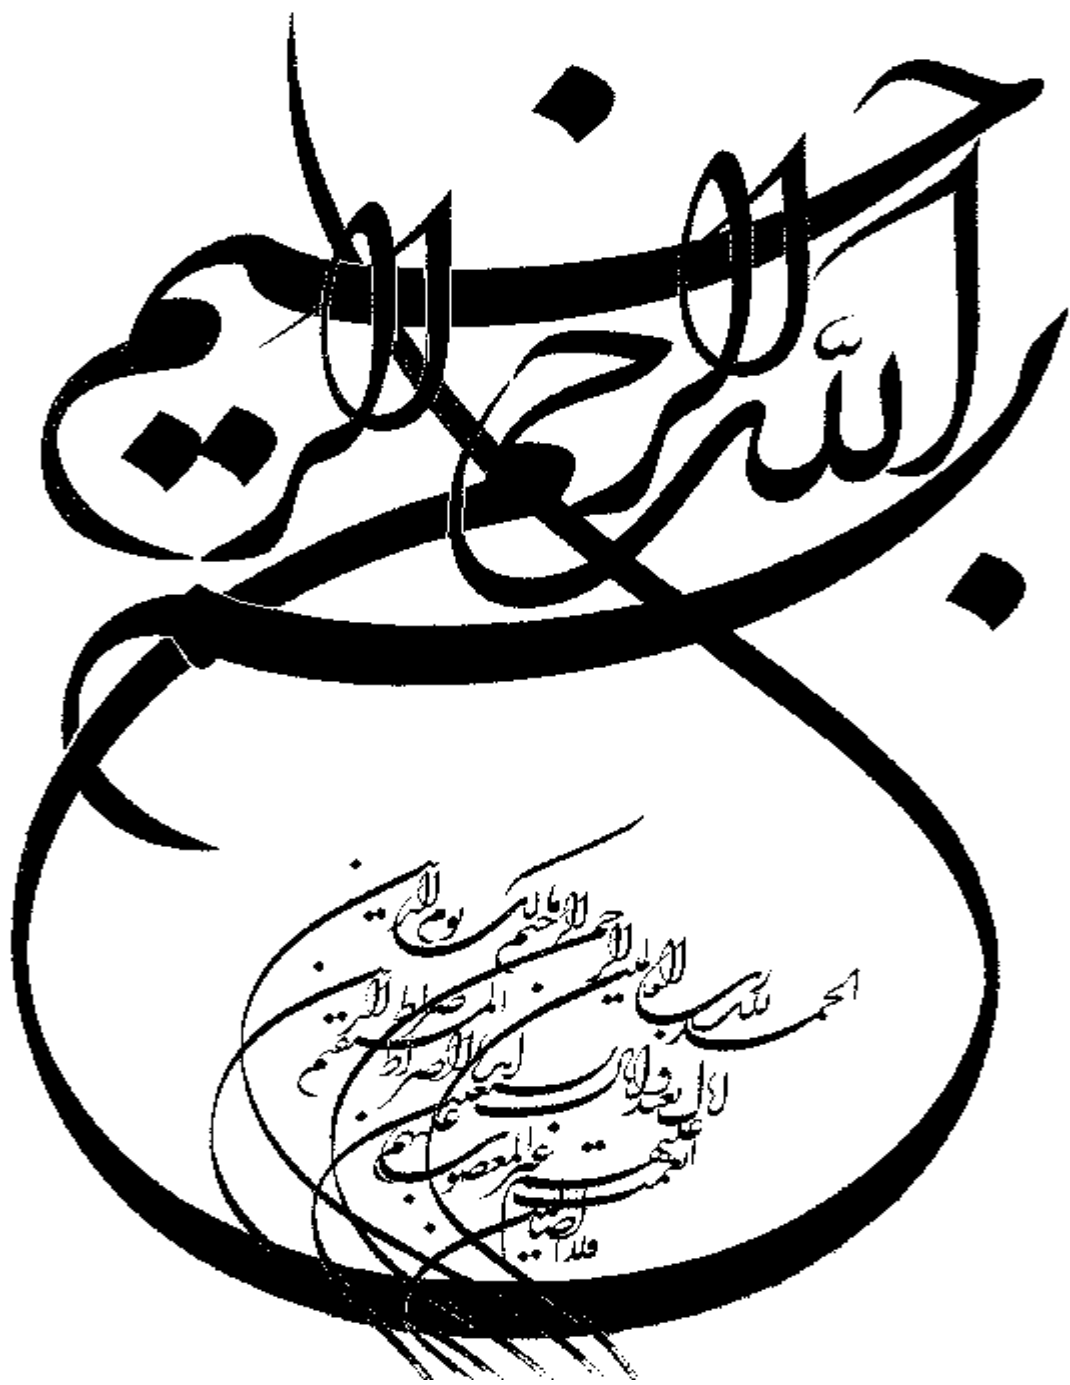 بسم الله الرحمن الرحيم
الحمد لله رب العالمين
الرحمن الرحيم مالك يوم الدين
إياك نعبد وإياك نستعين
اهدنا الصراط المستقيم
صراط الذين
أنعمت عليهم غير المغضوب عليهم
ولا الضالين